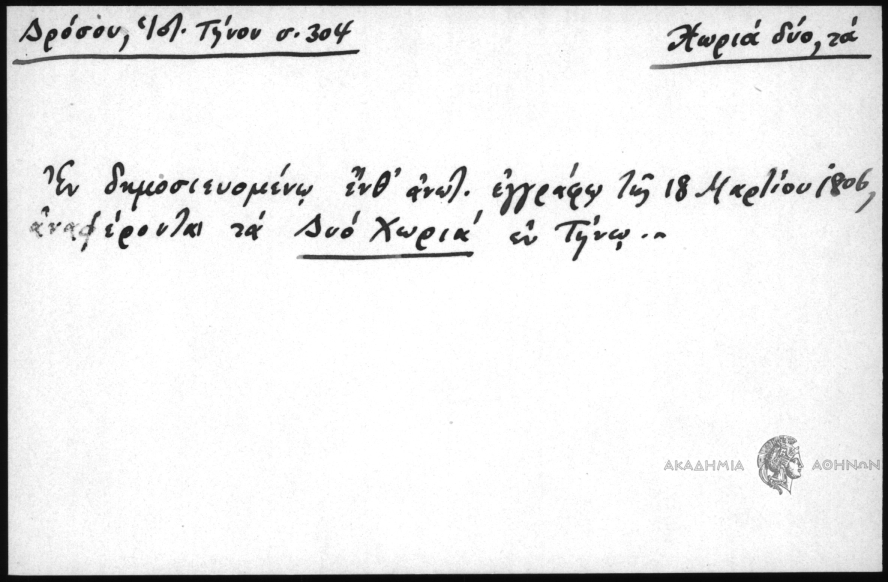 Δρόσου, Ἱστ. Τήνου σ. 304
Χωριά δύο, τά
Ἐν δημοσιευομένῳ ἔνθ' ἀνωτ. ἐγγράφῳ τῆς 18 Μαρτίου 1806,
ἀναφέρονται τά Δυό Χωριά ἐν Τήνῳ.-
ΑΚΑΔΗΜΙΑ ΑΘΗΝΩΝ